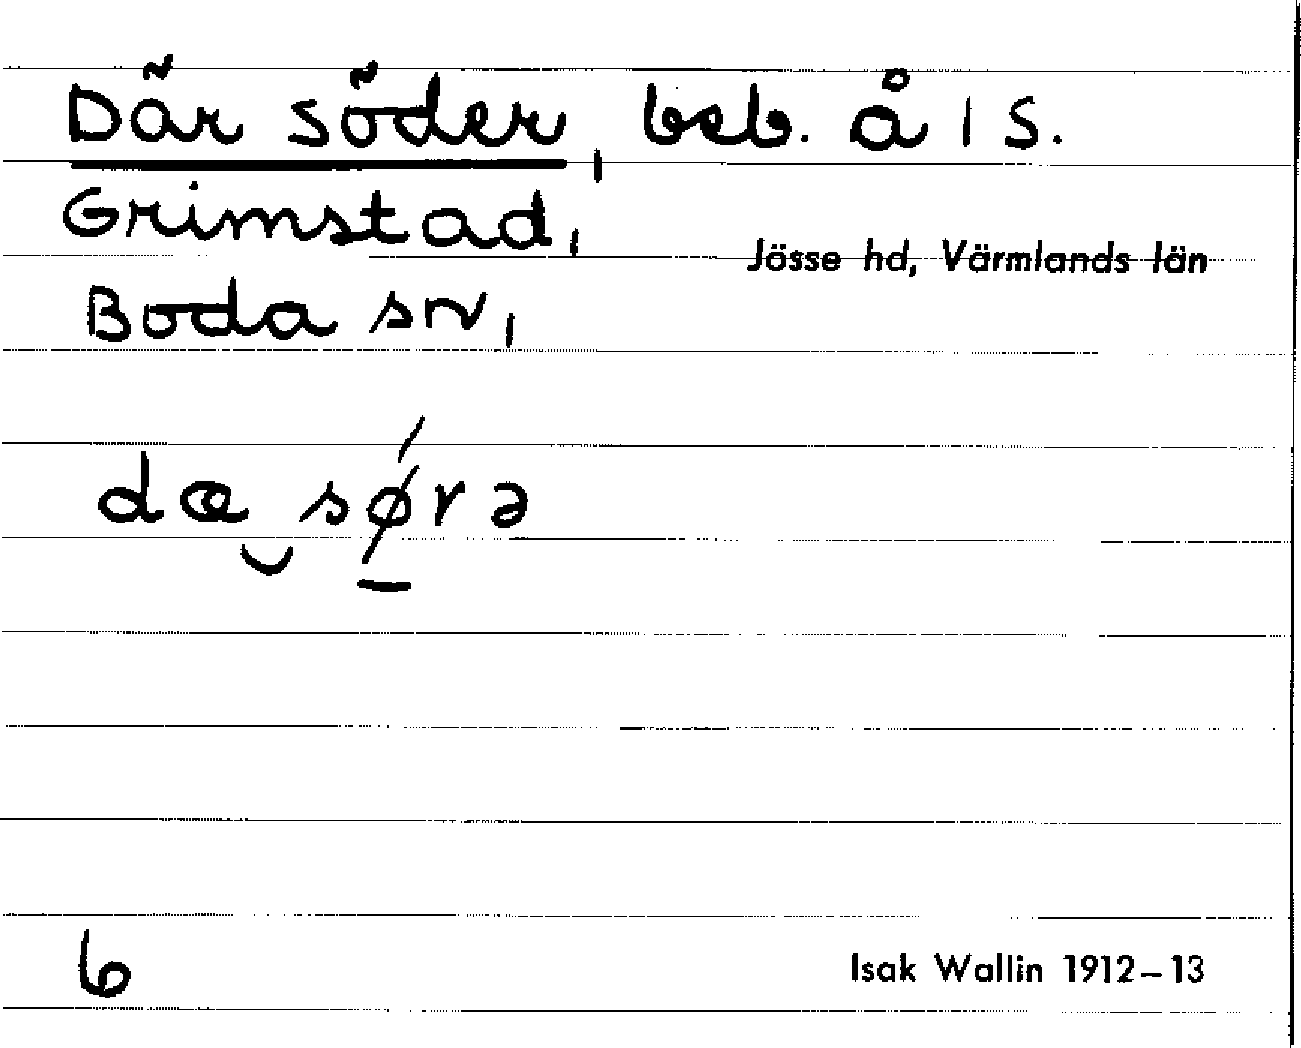 Där söder, beb. å 1 S.
Grimstad,
Jösse hd, Värmlands län
Boda sn,
dæ‿sǿ̱rə
6
Isak Wallin 1912–13